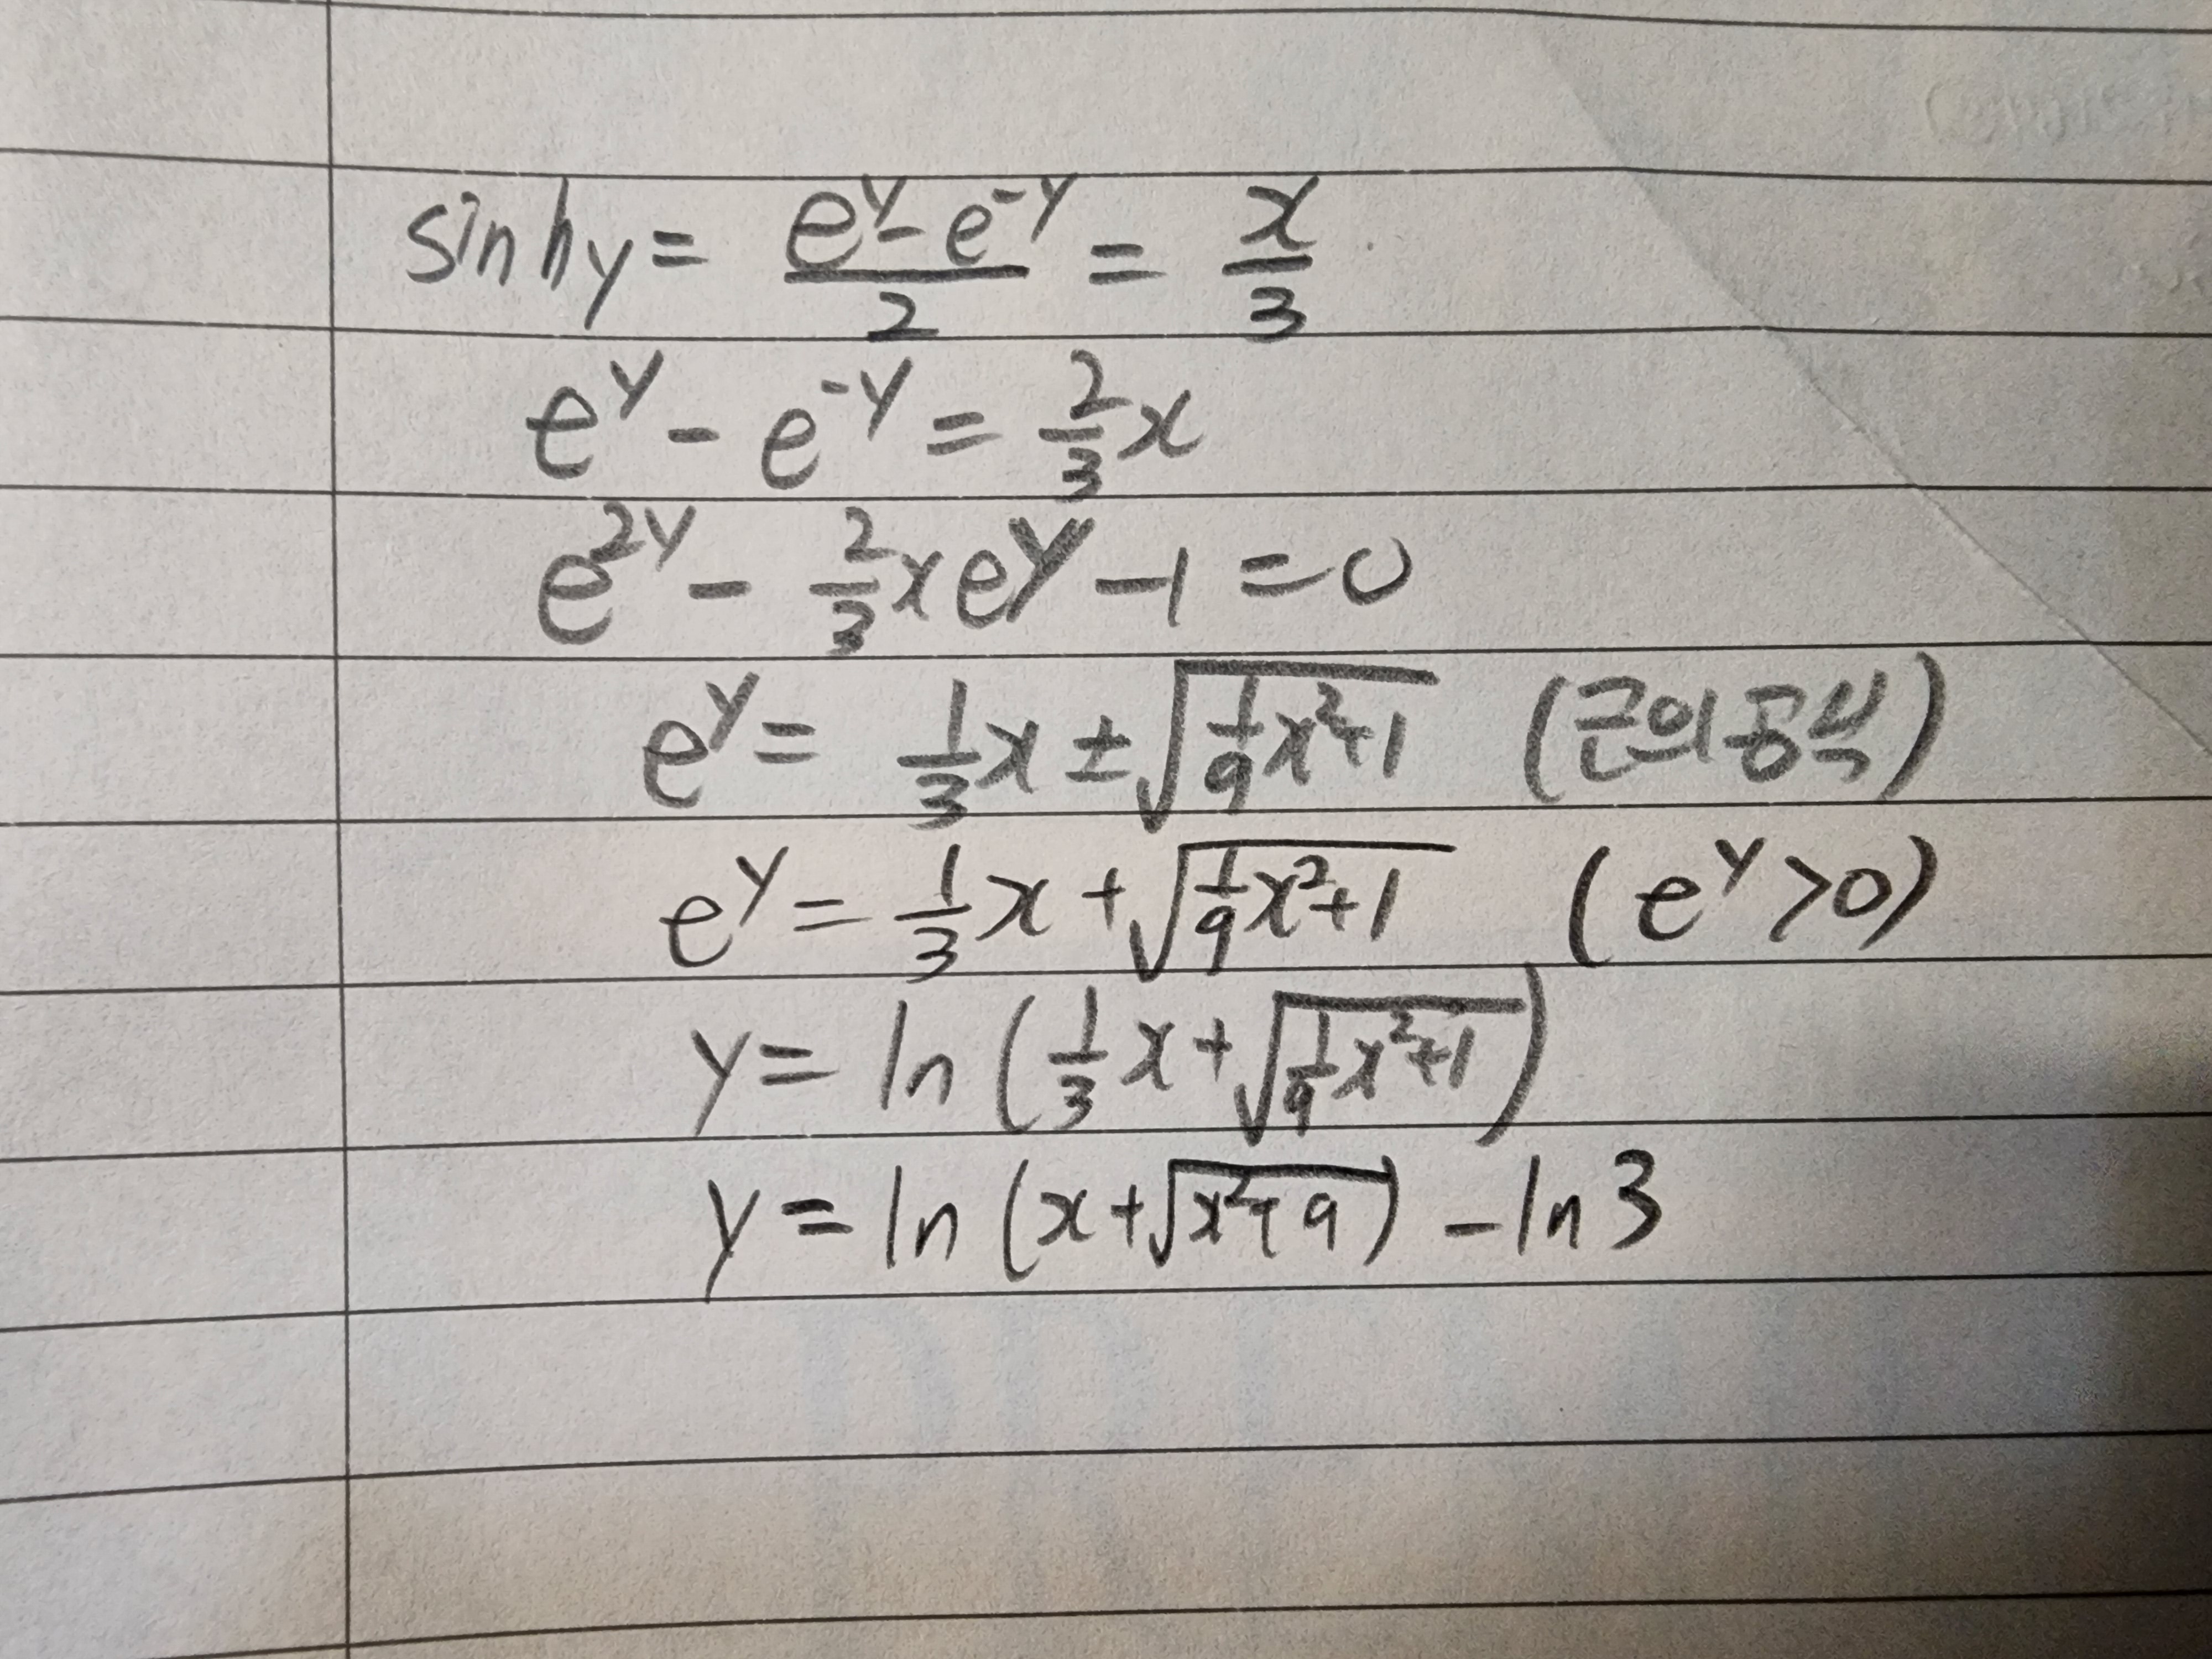 sinh y = (e^y - e^-y)/2 = x/3
e^y - e^-y = 2/3 x
e^2y - 2/3 x e^y - 1 = 0
e^y = 1/3 x ± √(1/9 x² + 1) (근의 공식)
e^y = 1/3 x + √(1/9 x² + 1) (e^y > 0)
y = ln (1/3 x + √(1/9 x² + 1))
y = ln (x + √(x² + 9)) - ln 3